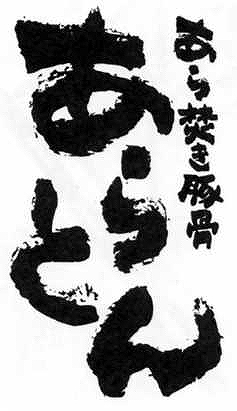 あら焚き豚骨
あらとん